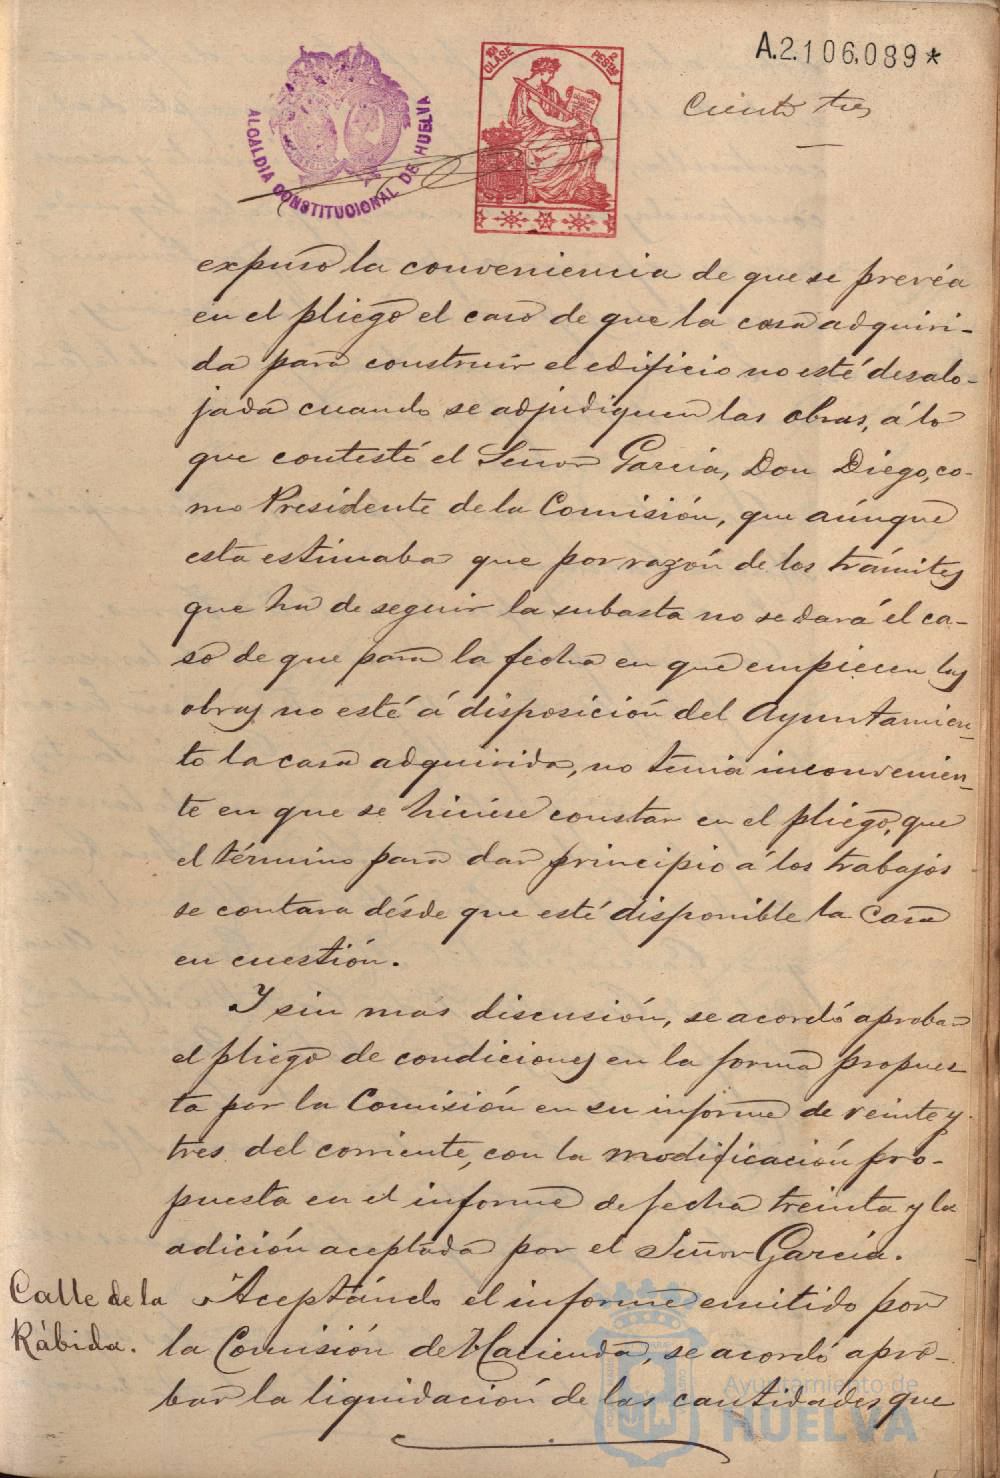 A.2.106,089*
10ª CLASE
2 PESETAS
ALCALDIA CONSTITUCIONAL DE HUELVA
Ciento tres
expuso la conveniencia de que se prevéa
en el pliego el caso de que la casa adquiri-
da para construir el edificio no esté desalo-
jada cuando se adjudiquen las obras, á lo
que contestó el Señor García, Don Diego, co-
mo Presidente de la Comisión, que aúnque
esta estimaba que por razón de los trámites
que ha de seguir la subasta no se dará el ca-
so de que para la fecha en que empiecen las
obras no esté á disposición del Ayuntamien-
to la casa adquirida, no tenia inconvenien-
te en que se hiciese constar en el pliego, que
el término para dar principio á los trabajos
se contara désde que esté disponible la casa
en cuestión.
Y sin mas discusión, se acordó aprobar
el pliego de condiciones en la forma propues-
ta por la Comisión en su informe de veinte y
tres del corriente, con la modificación pro-
puesta en el informe de fecha treinta y la
adición aceptada por el Señor García.
Calle de la
Rábida.
Aceptándo el informe emitido por
la Comisión de Hacienda, se acordó apro-
bar la liquidación de las cantidades que
Ayuntamiento de
HUELVA